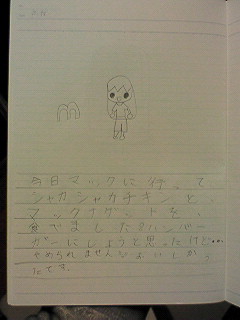 今日マックに行って
シャカシャカチキンと
マックナゲットを
食べましたハンバー
ガーにしようと思ったけど…
やめられませんおいしかっ
たです。